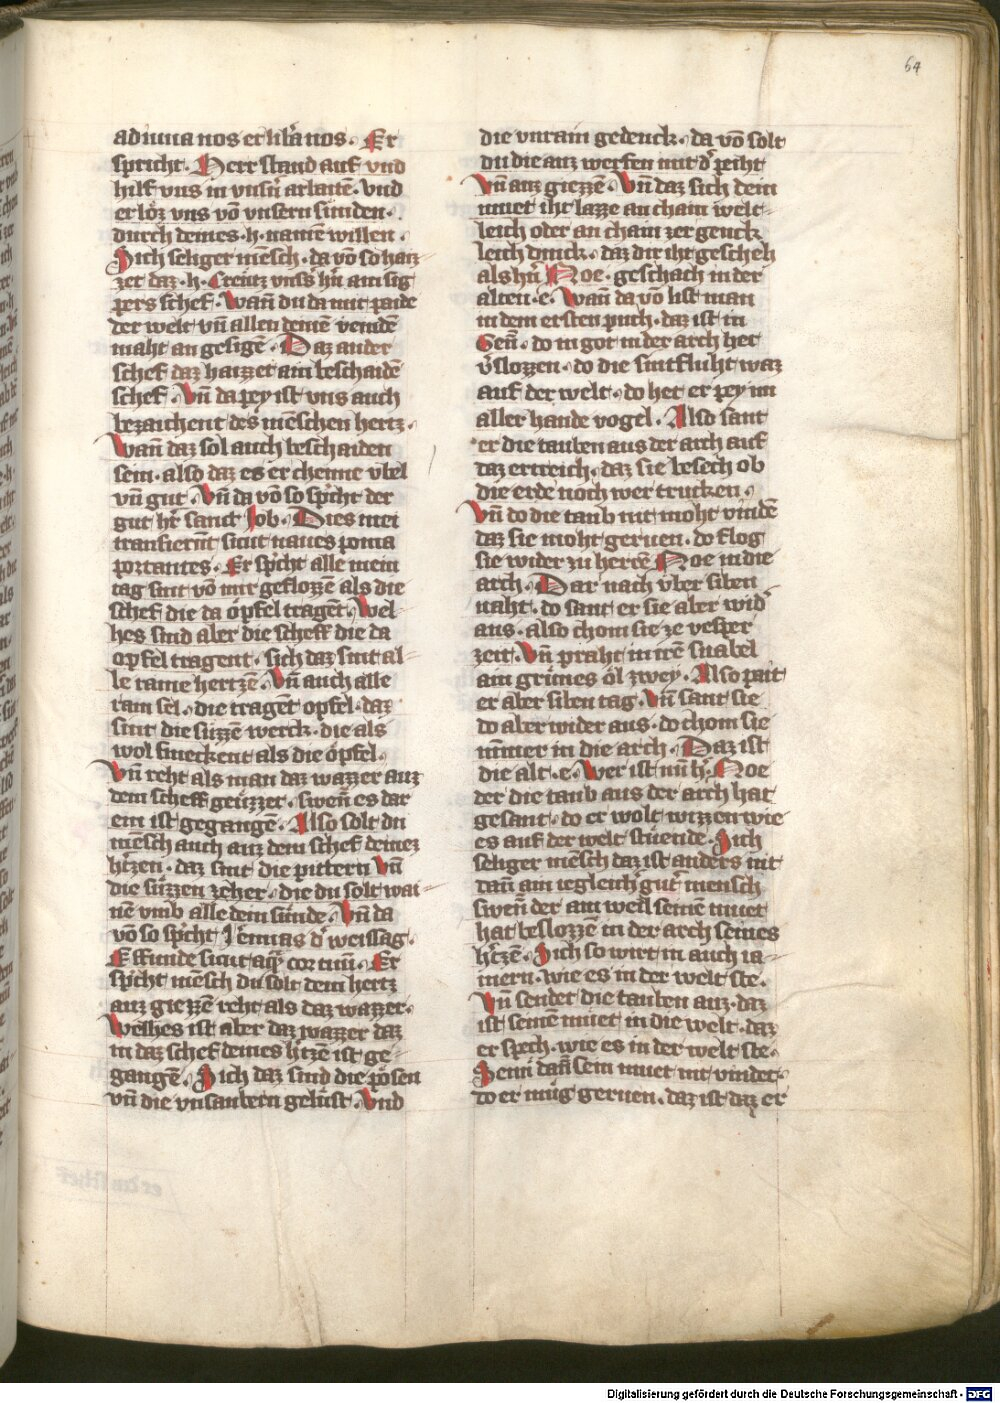 64
adiuua nos et lib̄a nos. Er
spricht. Herr stand auf vnd
hilf vns in vnsn̄ arbaitē. Vnd
er lőz vns võ vnsern sünden.
durch deines .h. namē willen.
Sich seliger mēsch. da võ so haiz-
zet daz .h. Creütz vnsˢ hn̄ ain sig
pers schef. Wañ du da mit paide
der welt vñ allen deinē veindē
maht an gesigē. Daz ander
schef daz haizzet ain beschaidē
schef. Vñ da pey ist vns auch
bezaichent des mēschen hertz.
Wañ daz sol auch beschaiden
sein. also daz es erchenne vbel
vñ gut. Vñ da võ so spͥcht der
gut hr̄ sanct Job. Dies mei
transierūt sicut naues poma
portantes. Er spͥcht alle mein
tag sint võ mir geflozzē als die
schef die da ȯpfel tragēt. Wel
hes sind aber die scheff die da
ȯpfel tragent. sich daz sint al-
le raine hertzē. Vñ auch alle
rain sel. die tragēt ȯpfel. daz
sint die süzzē werck. die als
wol smeckent als die ȯpfel.
Vñ reht als man daz wazzer auz
dem scheff geüzzet. swen̄ es dar
ein ist gegangē. Also solt du
mēsch auch auz dem schef deinez
hˢtzen. daz sint die pittern vñ
die süzzen zeher. die du solt wai-
nē vmb alle dein sünde. Vñ da
võ so spͥcht Jeremias dˢ weissag.
Effunde sicut aqͣ cor tuū. Er
spͥcht mēsch du solt dein hertz
auz giezzē reht als daz wazzer.
Welhes ist aber daz wazzer daz
in daz schef deines hˢtzē ist ge-
gangē. Sich daz sind die pősen
vñ die vnsaubern gelüst. Vnd
die vnrain gedenck. da võ solt
du die auz werfen mit dˢ peiht
Vñ auz giezzē. Vñ daz sich dein
muet iht lazze an chain welt-
leich oder an chain zergenck
leich dinck. daz dir iht gescheh
als hn̄ Noe. geschach in der
alten .e. Wañ da võ list man
in dem ersten puch. daz ist in
Geñ. do in got in der arch het
vˢslozzen. do die sintfluht waz
auf der welt. do het er pey im
aller hande vogel. Also sant
er die tauben aus der arch auf
daz ertreich. daz sie besech ob
die erde noch wer trucken.
Vñ do die taub nit moht vindē
daz sie moht geruen. do flog
sie wider zu herrē Noe in die
arch. Dar nach vber siben
naht. do sant er sie aber widˢ
aus. also chom sie ze vesper
zeit. Vñ praht in irē snabel
ain grünes ȯl zwey. Also pait
er aber siben tag. Vñ sant sie
do aber wider aus. do chom sie
nimmer in die arch. Daz ist
die alt .e. Wer ist nu hˢ. Noe
der die taub aus der arch hat
gesant. do er wolt wizzen wie
es auf der welt stüende. Sich
seliger mēsch daz ist anders nit
dañ ain iegleichˢ gutˢ mensch
swen̄ der ain weil seinē muet
hat beslozzē in der arch seines
hˢtzē. Sich so wirt in auch ia-
mern. wie es in der welt ste.
Vñ sendet die tauben auz. daz
ist seinē muet in die welt. daz
er spech. wie es in der welt ste.
Senn̄ dañ sein muet nit vindet.
do er müg geruen. daz ist daz er
Digitalisierung gefördert durch die Deutsche Forschungsgemeinschaft - DFG